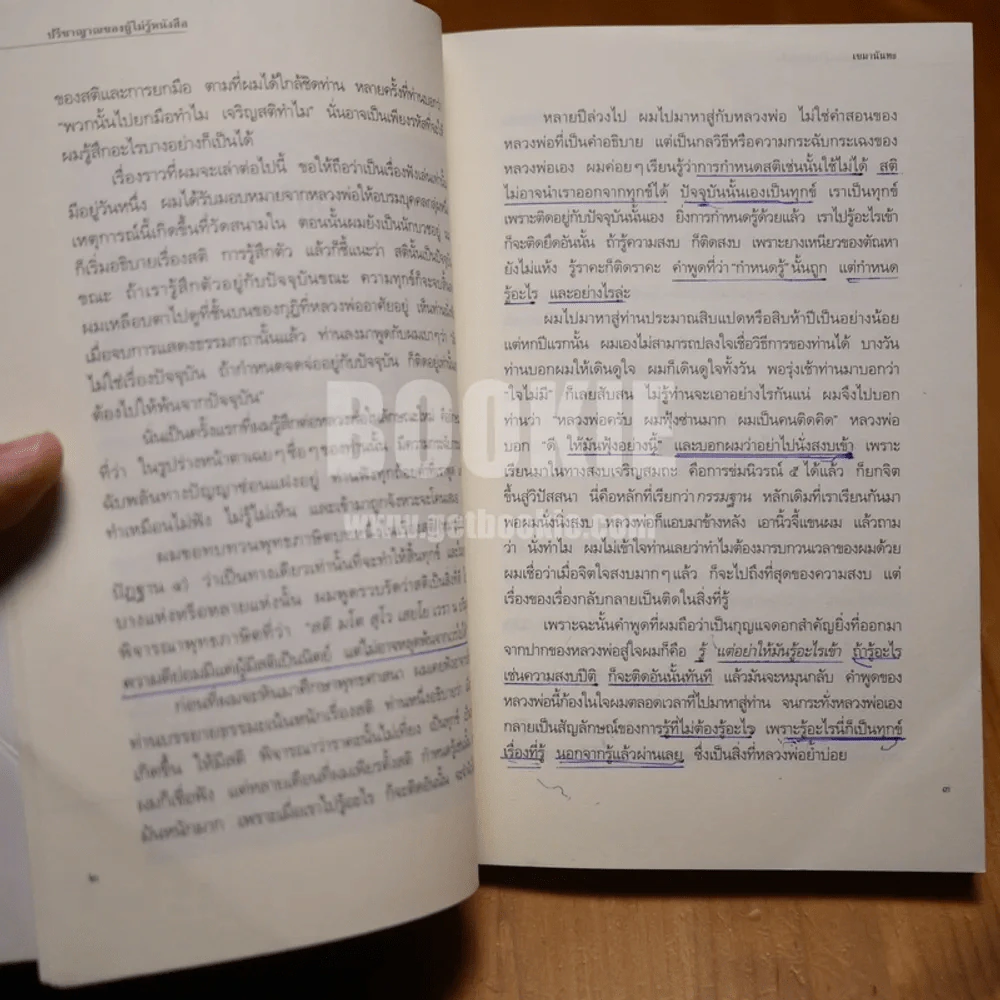 ปรีชาญาณของผู้ไม่รู้หนังสือ
ของสติและการยกมือ ตามที่ผมได้ใกล้ชิดท่าน หลายครั้งที่ท่านบอกว่า
"พวกนั้นไปยกมือทำไม เจริญสติทำไม" นั่นอาจเป็นเพียงรหัสที่จะให้
ผมรู้สึกอะไรบางอย่างก็เป็นได้
เรื่องราวที่ผมจะเล่าต่อไปนี้ ขอให้ถือว่าเป็นเรื่องฟังเล่นเท่านั้น
มีอยู่วันหนึ่ง ผมได้รับมอบหมายจากหลวงพ่อให้อบรมบุคคลกลุ่มหนึ่ง
เหตุการณ์นี้เกิดขึ้นที่วัดสนามใน ตอนนั้นผมยังเป็นนักบวชอยู่
ก็เริ่มอธิบายเรื่องสติ การรู้สึกตัว แล้วก็ชี้แนะว่า สตินั้นเป็นปัจจุบัน
ขณะ ถ้าเรารู้สึกตัวอยู่กับปัจจุบันขณะ ความทุกข์ก็จะจบสิ้น
ผมเหลือบตาไปดูที่ชั้นบนของกุฏิที่หลวงพ่ออาศัยอยู่ เห็นท่านนั่ง
เมื่อจบการแสดงธรรมกถานั้นแล้ว ท่านลงมาพูดกับผมเบาๆ ว่า
ไม่ใช่เรื่องปัจจุบัน ถ้ากำหนดจดจ่ออยู่กับปัจจุบัน ก็ติดอยู่เท่านั้น
ต้องไปให้พ้นจากปัจจุบัน"
นั่นเป็นครั้งแรกที่ผมรู้สึกต่อหลวงพ่อในลักษณะใหม่
ที่ว่า ในรูปร่างหน้าตาเฉยๆ ซื่อๆ ของท่านนั้น
ฉับพลันทางปัญญาซ่อนแฝงอยู่ ท่านฟังทุกถ้อยคำที่ผมพูด
ทำเหมือนไม่ฟัง ไม่รู้ไม่เห็น และเข้ามาถูกจังหวะ
ผมขอทบทวนพุทธภาษิต
ปัฏฐาน ๔) ว่าเป็นทางเดียวเท่านั้นที่จะทำให้สิ้นทุกข์
บางแห่งหรือหลายแห่งนั้น ผมพูดรวบรัดว่าสติเป็นสิ่งที่
พิจารณาพุทธภาษิตที่ว่า "สติ มโต สุเว เสยฺโย เวรา น
ความดีย่อมมีแต่ผู้มีสติเป็นนิตย์ แต่ไม่อาจหลุดพ้นจากเวรได้
ก่อนที่ผมจะหันมาศึกษาพุทธศาสนา
ท่านบรรยายธรรมะเน้นหนักเรื่องสติ ท่านหนึ่งอธิบายว่า
เกิดขึ้น ให้มีสติ พิจารณาว่าราคะนั้นไม่เที่ยง เป็นทุกข์
ผมก็เชื่อฟัง แต่หลายเดือนที่ผมเพียรตั้งสติ กำหนดรู้
มันหนักมาก เพราะเมื่อเราไปรู้อะไร ก็จะติดอันนั้น
๒
เขมานันทะ
หลายปีล่วงไป ผมไปมาหาสู่กับหลวงพ่อ ไม่ใช่คำสอนของ
หลวงพ่อที่เป็นคำอธิบาย แต่เป็นกลวิธีหรือความกระฉับกระเฉงของ
หลวงพ่อเอง ผมค่อยๆ เรียนรู้ว่าการกำหนดสติเช่นนั้นใช้ไม่ได้ สติ
ไม่อาจนำเราออกจากทุกข์ได้ ปัจจุบันนั้นเองเป็นทุกข์ เราเป็นทุกข์
เพราะติดอยู่กับปัจจุบันนั้นเอง ยิ่งการกำหนดรู้ด้วยแล้ว เราไปรู้อะไรเข้า
ก็จะติดยึดอันนั้น ถ้ารู้ความสงบ ก็ติดสงบ เพราะยางเหนียวของตัณหา
ยังไม่แห้ง รู้ราคะก็ติดราคะ คำพูดที่ว่า"กำหนดรู้"นั้นถูก แต่กำหนด
รู้อะไร และอย่างไรล่ะ
ผมไปมาหาสู่ท่านประมาณสิบแปดหรือสิบห้าปีเป็นอย่างน้อย
แต่หกปีแรกนั้น ผมเองไม่สามารถปลงใจเชื่อวิธีการของท่านได้ บางวัน
ท่านบอกผมให้เดินดูใจ ผมก็เดินดูใจทั้งวัน พอรุ่งเช้าท่านมาบอกว่า
"ใจไม่มี" ก็เลยสับสน ไม่รู้ท่านจะเอาอย่างไรกันแน่ ผมจึงไปบอก
ท่านว่า "หลวงพ่อครับ ผมฟุ้งซ่านมาก ผมเป็นคนติดคิด" หลวงพ่อ
บอก "ดี ให้มันฟุ้งอย่างนี้" และบอกผมว่าอย่าไปนั่งสงบเข้า เพราะ
เรียนมาในทางสงบเจริญสมถะ คือการข่มนิวรณ์ ๕ ได้แล้ว ก็ยกจิต
ขึ้นสู่วิปัสสนา นี่คือหลักที่เรียกว่ากรรมฐาน หลักเดิมที่เราเรียนกันมา
พอผมนั่งนิ่งสงบ หลวงพ่อก็แอบมาข้างหลัง เอานิ้วจี้แขนผม แล้วถาม
ว่า นั่งทำไม ผมไม่เข้าใจท่านเลยว่าทำไมต้องมารบกวนเวลาของผมด้วย
ผมเชื่อว่าเมื่อจิตใจสงบมากๆ แล้ว ก็จะไปถึงที่สุดของความสงบ แต่
เรื่องของเรื่องกลับกลายเป็นติดในสิ่งที่รู้
เพราะฉะนั้นคำพูดที่ผมถือว่าเป็นกุญแจดอกสำคัญยิ่งที่ออกมา
จากปากของหลวงพ่อสู่ใจผมก็คือ รู้ แต่อย่าให้มันรู้อะไรเข้า ถ้ารู้อะไร
เช่นความสงบปีติ ก็จะติดอันนั้นทันที แล้วมันจะหมุนกลับ คำพูดของ
หลวงพ่อนี้ก้องในใจผมตลอดเวลาที่ไปมาหาสู่ท่าน จนกระทั่งหลวงพ่อเอง
กลายเป็นสัญลักษณ์ของการรู้ที่ไม่ต้องรู้อะไร เพราะรู้อะไรนี่ก็เป็นทุกข์
เรื่องที่รู้ นอกจากรู้แล้วผ่านเลย ซึ่งเป็นสิ่งที่หลวงพ่อย้ำบ่อย
๓
BOOKIE
www.getbookie.com